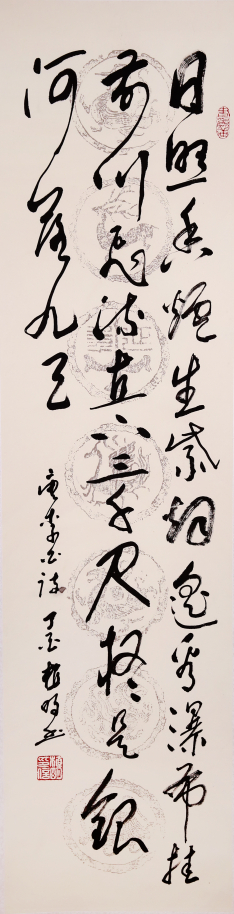 日照香炉生紫烟遥看瀑布挂
前川飞流直下三千尺疑是银
河落九天
唐李白诗